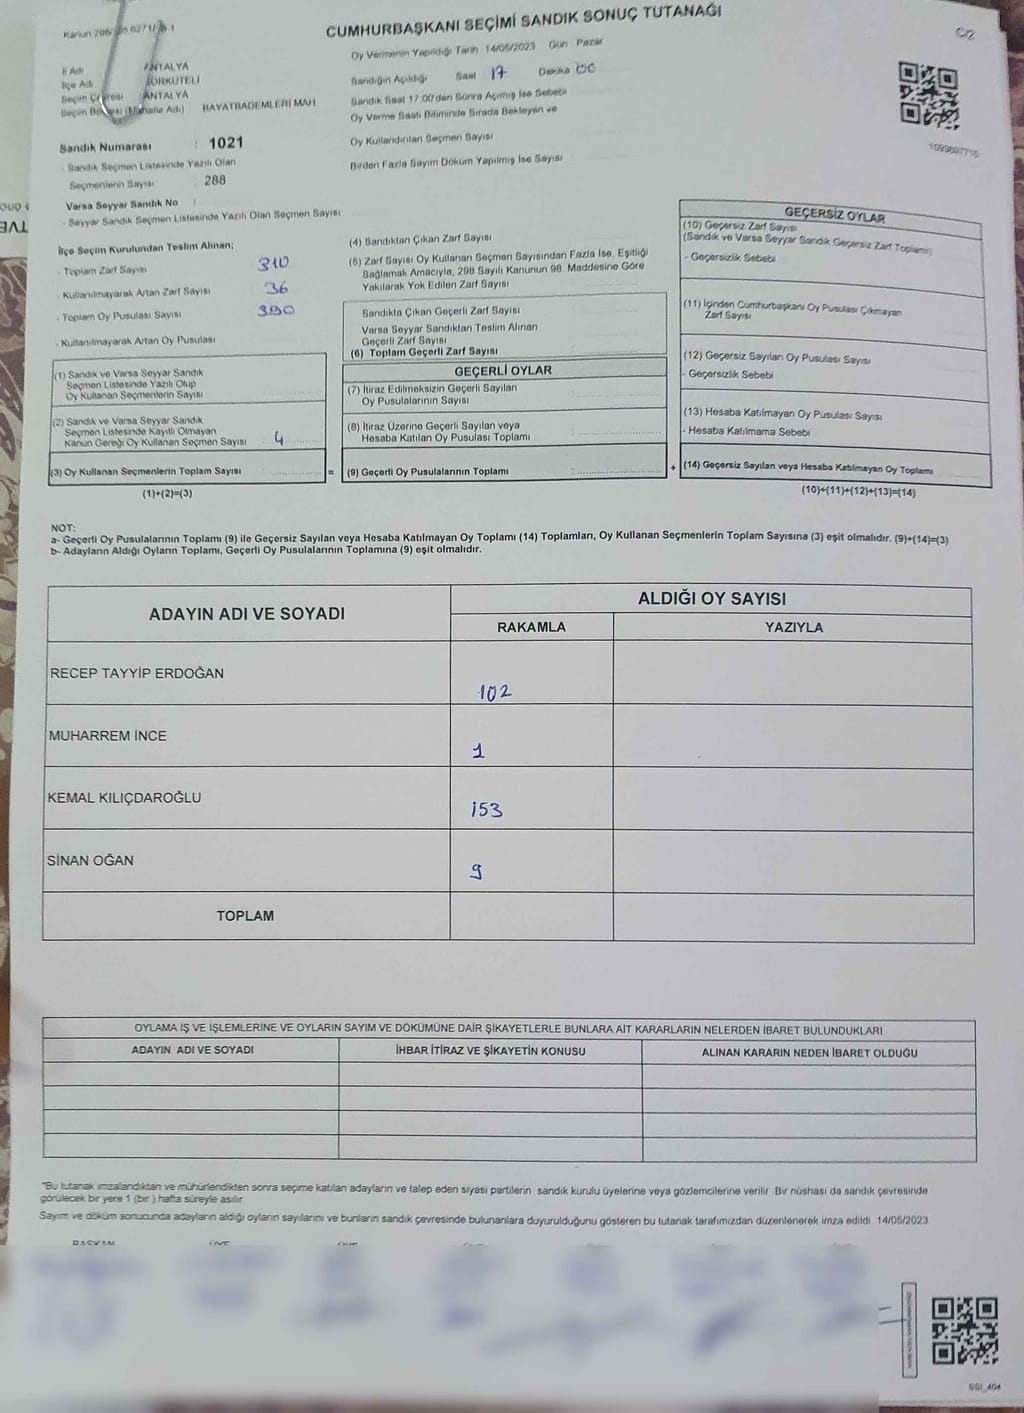 CUMHURBAŞKANI SEÇİMİ SANDIK SONUÇ TUTANAĞI
Oy Vermenin Yapıldığı Tarih 14/05/2023 Gün Pazar
İl Adı ANTALYA
İlçe Adı KORKUTELİ
Seçim Çevresi ANTALYA
Seçim Bölgesi (Mahalle Adı) BAYATBADEMLERİ MAH
Sandığın Açıldığı Saat 17 Dakika 00
Sandık Saat 17.00'den Sonra Açılmış İse Sebebi
Oy Verme Saati Bitiminde Sırada Bekleyen ve
Oy Kullandırılan Seçmen Sayısı
Birden Fazla Sayım Döküm Yapılmış İse Sayısı
Sandık Numarası : 1021
- Sandık Seçmen Listesinde Yazılı Olan
Seçmenlerin Sayısı 288
Varsa Seyyar Sandık No :
- Seyyar Sandık Seçmen Listesinde Yazılı Olan Seçmen Sayısı
İlçe Seçim Kurulundan Teslim Alınan;
- Toplam Zarf Sayısı 310
- Kullanılmayarak Artan Zarf Sayısı 36
- Toplam Oy Pusulası Sayısı
- Kullanılmayarak Artan Oy Pusulası
(1) Sandık ve Varsa Seyyar Sandık
Seçmen Listesinde Yazılı Olup
Oy Kullanan Seçmenlerin Sayısı
(2) Sandık ve Varsa Seyyar Sandık
Seçmen Listesinde Kayıtlı Olmayan
Kanun Gereği Oy Kullanan Seçmen Sayısı : 4
(3) Oy Kullanan Seçmenlerin Toplam Sayısı
(1)+(2)=(3)
(4) Sandıktan Çıkan Zarf Sayısı
(5) Zarf Sayısı Oy Kullanan Seçmen Sayısından Fazla İse, Eşitliği
Sağlamak Amacıyla, 298 Sayılı Kanunun 98. Maddesine Göre
Yakılarak Yok Edilen Zarf Sayısı
Sandıkta Çıkan Geçerli Zarf Sayısı
Varsa Seyyar Sandıktan Teslim Alınan
Geçerli Zarf Sayısı
(6) Toplam Geçerli Zarf Sayısı
GEÇERLİ OYLAR
(7) İtiraz Edilmeksizin Geçerli Sayılan
Oy Pusulalarının Sayısı
(8) İtiraz Üzerine Geçerli Sayılan veya
Hesaba Katılan Oy Pusulası Toplamı
= (9) Geçerli Oy Pusulalarının Toplamı :
GEÇERSİZ OYLAR
(10) Geçersiz Zarf Sayısı
(Sandık ve Varsa Seyyar Sandık Geçersiz Zarf Toplamı)
- Geçersizlik Sebebi
(11) İçinden Cumhurbaşkanı Oy Pusulası Çıkmayan
Zarf Sayısı
(12) Geçersiz Sayılan Oy Pusulası Sayısı
- Geçersizlik Sebebi
(13) Hesaba Katılmayan Oy Pusulası Sayısı
- Hesaba Katılmama Sebebi
+ (14) Geçersiz Sayılan veya Hesaba Katılmayan Oy Toplamı
(10)+(11)+(12)+(13)=(14)
NOT:
a- Geçerli Oy Pusulalarının Toplamı (9) ile Geçersiz Sayılan veya Hesaba Katılmayan Oy Toplamı (14) Toplamları, Oy Kullanan Seçmenlerin Toplam Sayısına (3) eşit olmalıdır. (9)+(14)=(3)
b- Adayların Aldığı Oyların Toplamı, Geçerli Oy Pusulalarının Toplamına (9) eşit olmalıdır.
ADAYIN ADI VE SOYADI
ALDIĞI OY SAYISI
RAKAMLA YAZIYLA
RECEP TAYYİP ERDOĞAN 102
MUHARREM İNCE 1
KEMAL KILIÇDAROĞLU 153
SİNAN OĞAN 9
TOPLAM
OYLAMA İŞ VE İŞLEMLERİNE VE OYLARIN SAYIM VE DÖKÜMÜNE DAİR ŞİKAYETLERLE BUNLARA AİT KARARLARIN NELERDEN İBARET BULUNDUKLARI
ADAYIN ADI VE SOYADI İHBAR İTİRAZ VE ŞİKAYETİN KONUSU ALINAN KARARIN NEDEN İBARET OLDUĞU
"Bu tutanak imzalandıktan ve mühürlendikten sonra seçime katılan adayların ve talep eden siyasi partilerin sandık kurulu üyelerine veya gözlemcilerine verilir. Bir nüshası da sandık çevresinde
görülecek bir yere 1 (bir ) hafta süreyle asılır.
Sayım ve döküm sonucunda adayların aldığı oyların sayılarını ve bunların sandık çevresinde bulunanlara duyurulduğunu gösteren bu tutanak tarafımızdan düzenlenerek imza edildi. 14/05/2023
BAŞKAN ÜYE